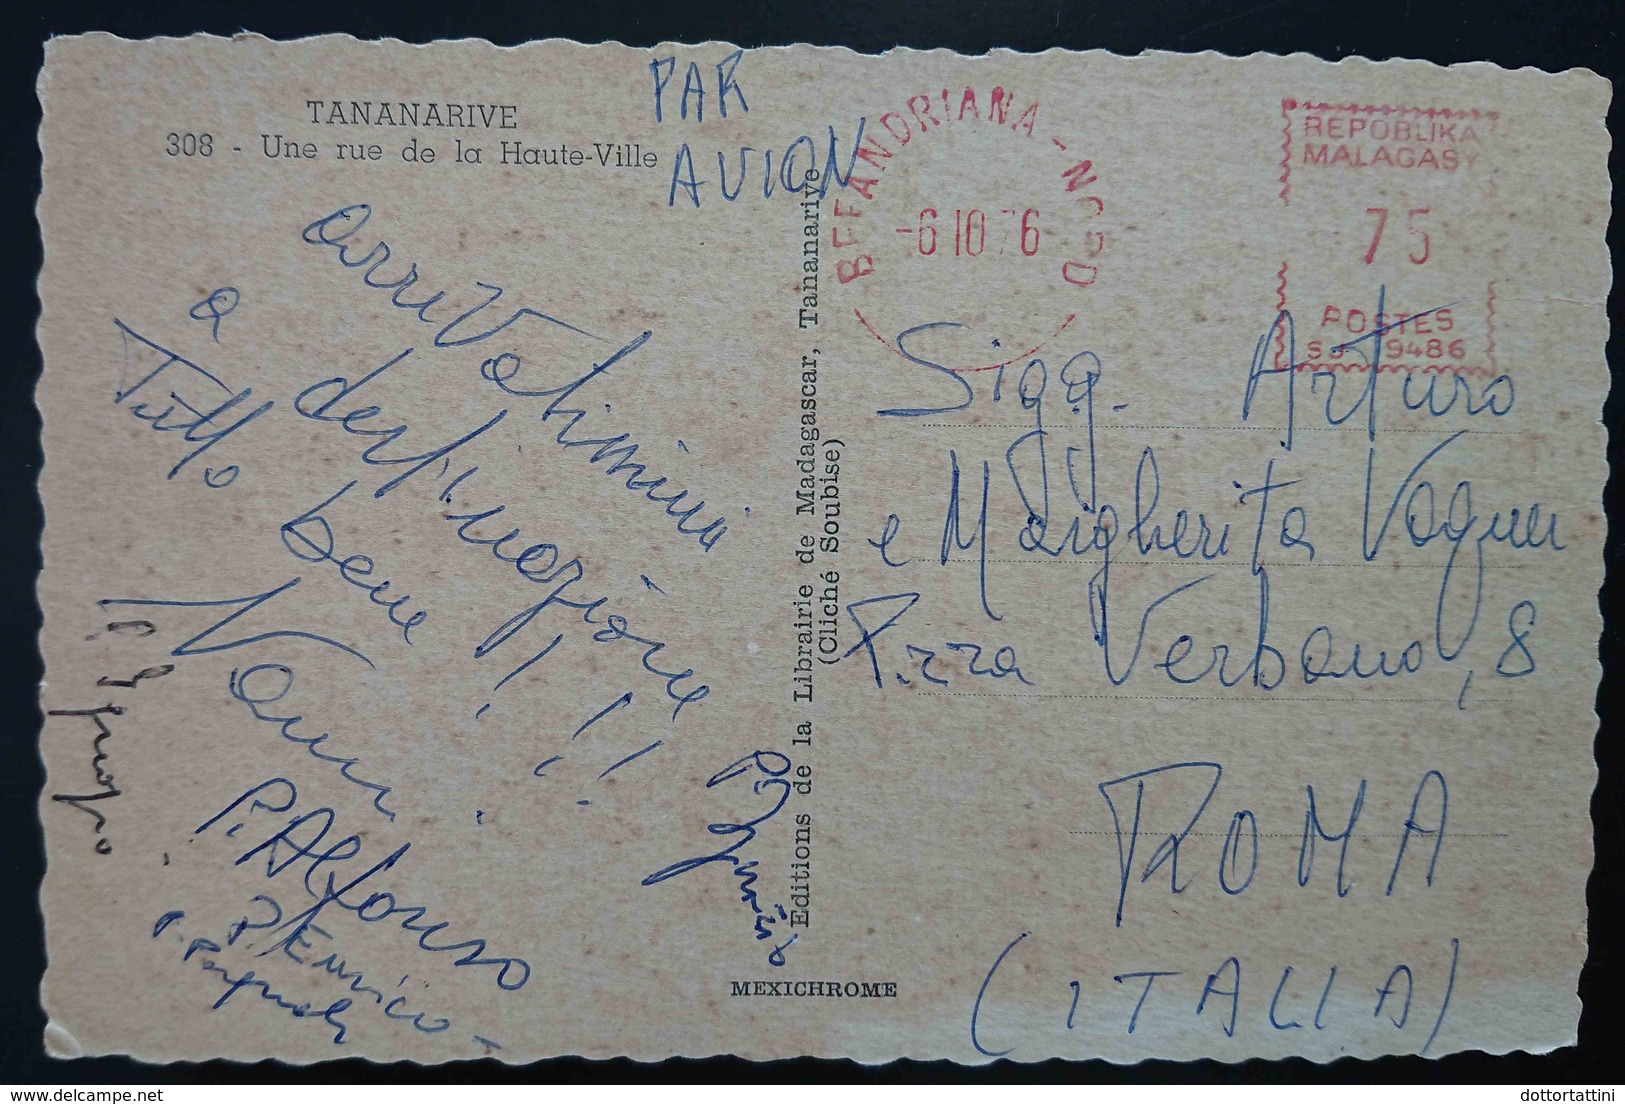 TANANARIVE
308 - Une rue de la Haute-Ville
PAR
AVION
BEFANDRIANA-NORD
-6 10 76
REPOBLIKA
MALAGASY
75
POSTES
9486
arrivatimimi
a destinazione
Tutto bene!!!
P. Alfonso
P. Enrico
P.
Editions de la Librairie de Madagascar, Tananarive
(Cliché Soubise)
MEXICHROME
Sigg. Arturo
e Margherita
P.zza Verbano, 8
ROMA
(ITALIA)
dottortattini